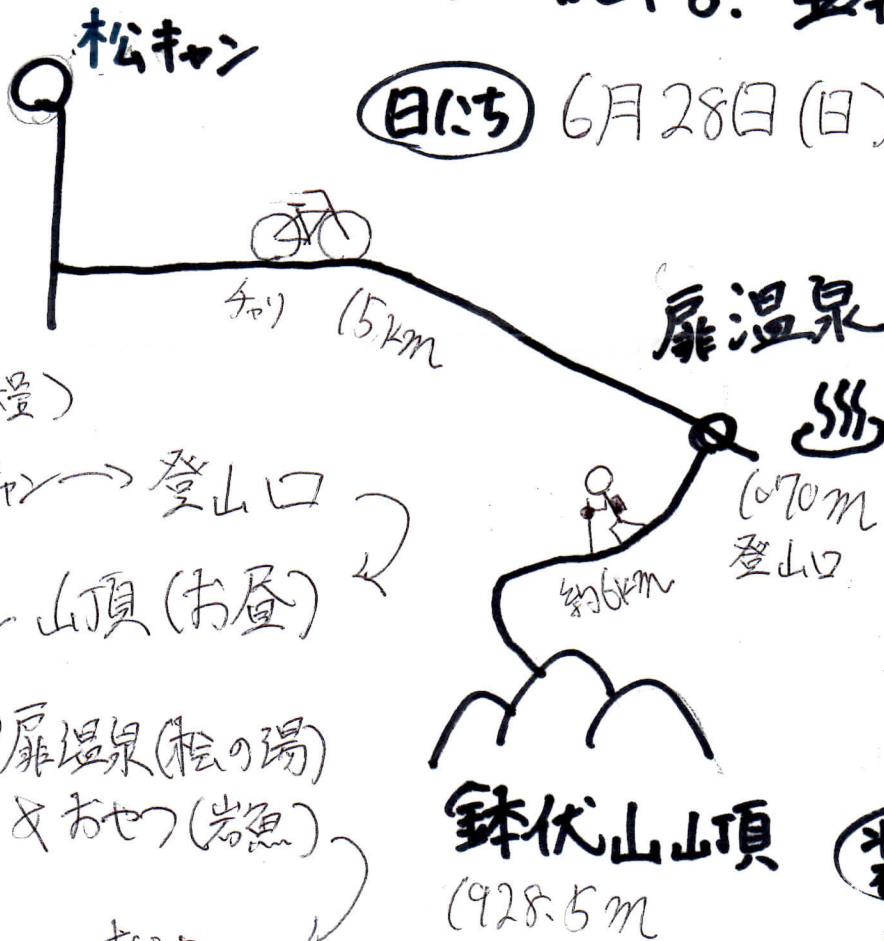 松キャン
日にち 6月28日(日)
チャリ 15km
扉温泉
1070m
登山口
ャン→登山口
約6km
山頂(お昼)
扉温泉(桧の湯)
&おやつ(岩魚)
鉢伏山山頂
1928.5m